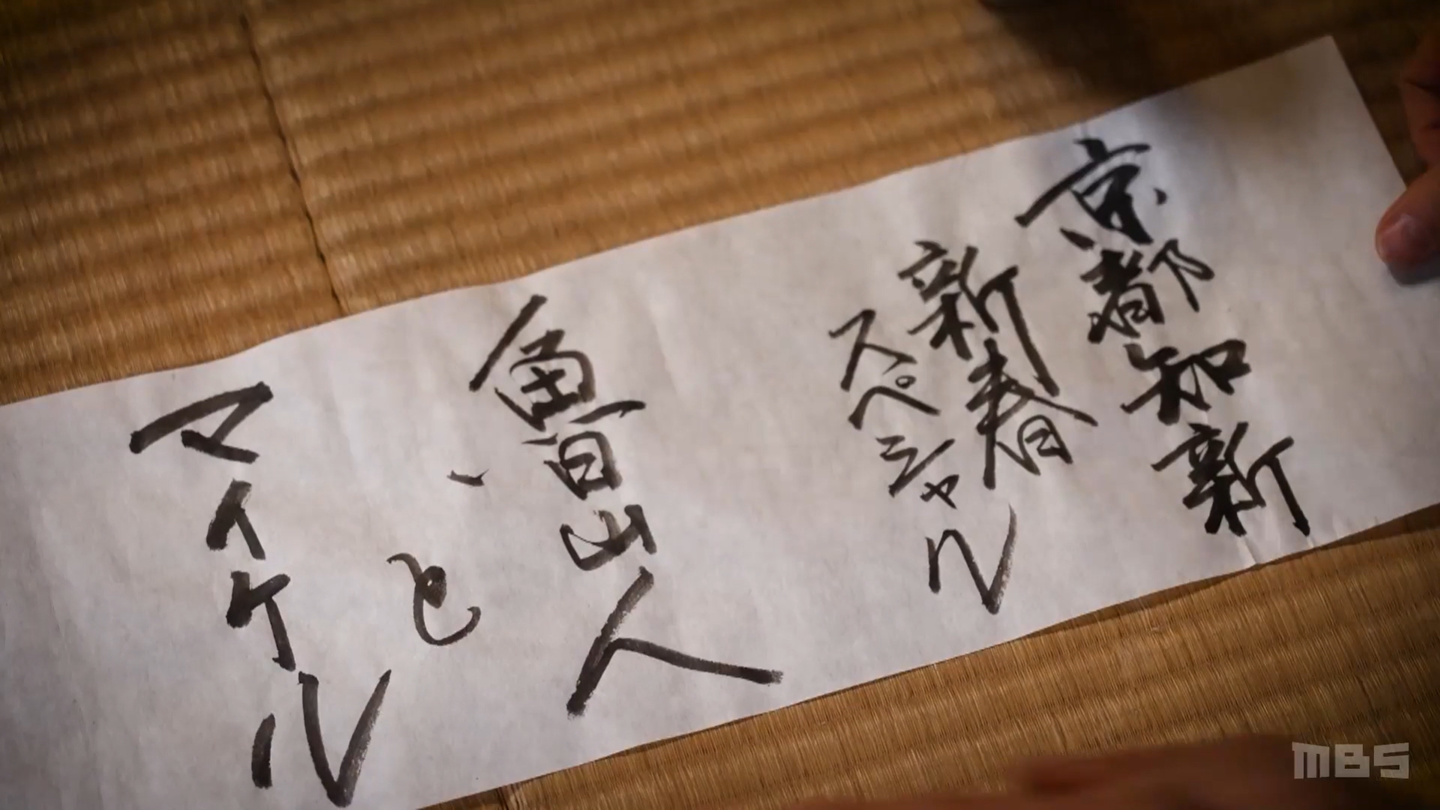 京都知新
新春
スペシャル
魯山人
と
マイケル
MBS